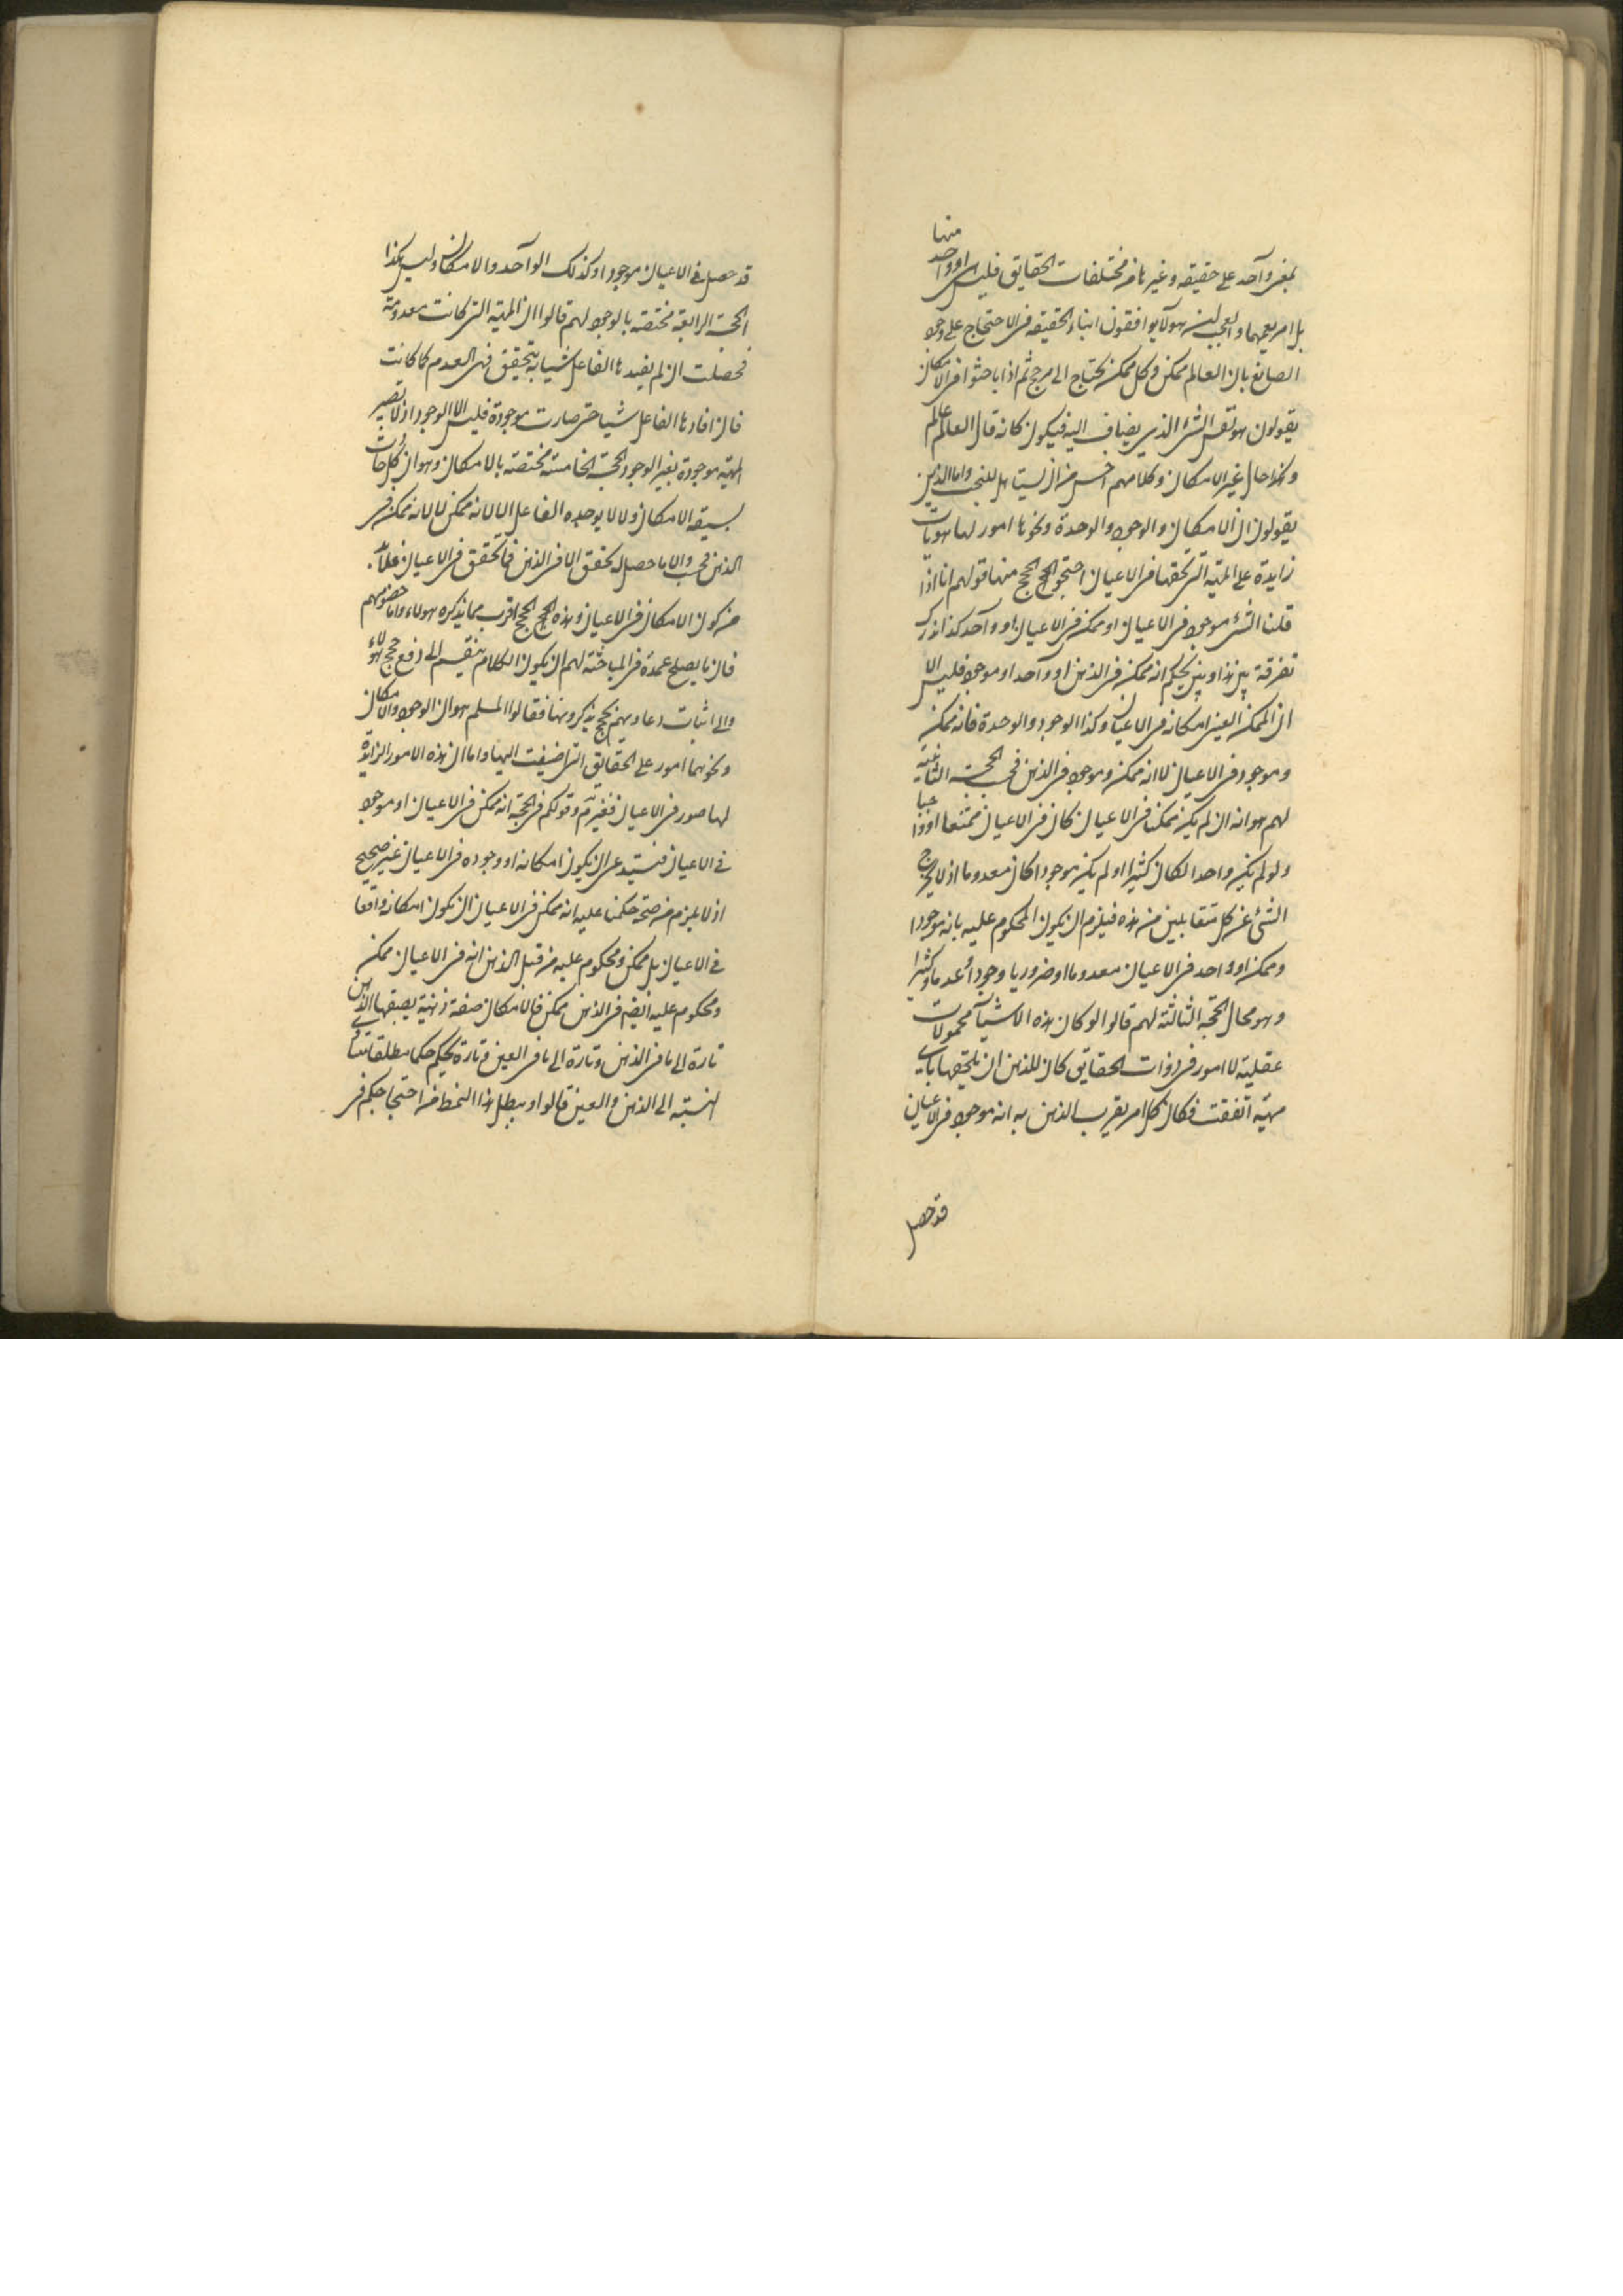 منها
بمعنى واحد على حقيقه وغيرها من مختلفات الحقايق فليس هى او واحد
بل امر يعمهما والعجب ان هولآ يوافقون ابناء الحقيقه فى الاحتجاج على وجود
الصانع بان العالم ممكن وكل ممكن يحتاج الى مرجح ثم اذا باحثوا فى الامكان
يقولون هو نفس الشئ الذى يضاف اليه فيكون كانه قال العالم عالم
وكذا حال غير الامكان وكلامهم اخس من ان يستاهل للتعجب واما الذين
يقولون ان الامكان والوجود والوحدة ونحوها امور لها هويات
زايدة على المهية التى تحققها فى الاعيان احتجوا بحجج منها قولهم انا اذا
قلنا الشئ موجود فى الاعيان او ممكن فى الاعيان او واحد كذا ندرك
تفرقة بين هذا وبين الحكم انه ممكن فى الذهن او واحد او موجود فليس الا
ان الممكن العينى امكانه فى الاعيان وكذا الوجود والوحدة فانه ممكن
وموجود فى الاعيان لا انه ممكن وموجود فى الذهن فحسب الحجة الثانية
لهم هو انه ان لم يكن ممكنا فى الاعيان كان فى الاعيان ممتنعا او واجبا
ولو لم يكن واحدا لكان كثيرا او لم يكن موجودا كان معدوما اذ لا يخرج
الشئ عن كل متقابلين من هذه فيلزم ان يكون المحكوم عليه بانه موجودا
وممكن او واحد فى الاعيان معدوما او ضروريا وجودا او عدما وكثيرا
وهو محال الحجة الثالثة لهم قالوا لو كان هذه الاشيآ محمولات
عقلية لا امور فى ذوات الحقايق كان للذهن ان يلحقها باى
مهية اتفقت فكان كل امر يقرب الذهن به انه موجود فى الاعيان
قد حصل
قد حصل فى الاعيان موجودا وكذلك الواحد والامكان وليس كذا
الحجة الرابعة مختصة بالوجود لهم قالوا ان المهية التى كانت معدومة
فحصلت ان لم يفيدها الفاعل شيا به يتحقق فهى العدم كما كانت
فان افادها الفاعل شيا حتى صارت موجودة فليس الا الوجود اذ لا تصير
المهية موجودة بغير الوجود الحجة الخامسة مختصة بالامكان وهو ان كل حادث
يسبقه الامكان ولا لا يوجده الفاعل لا لانه ممكن لا لانه ممكن فى
الذهن فحسب والا ما حصل له تحقق الا فى الذهن فما تحقق فى الاعيان فلابد
من كون الامكان فى الاعيان وهذه الحجج اقرب مما يذكره هولاء واما خصومهم
فان ما يصلح عمدة فى المباحثة لهم ان يكون الكلام ينقسم الى دفع حجج هؤلاء
والى اثبات دعاويهم بحجج يذكرونها فقالوا المسلم هو ان الوجود والامكان
ونحوهما امور على الحقايق التى اضيفت اليها واما ان هذه الامور الزايدة
لها صور فى الاعيان فغير مسلم وقولكم فى الحجة انه ممكن فى الاعيان او موجود
فى الاعيان فيستدعى ان يكون امكانه او وجوده فى الاعيان غير صحيح
اذ لا يلزم من صحة حكمنا عليه انه ممكن فى الاعيان ان يكون امكانه واقعا
فى الاعيان بل ممكن ومحكوم عليه من قبل الذهن انه فى الاعيان ممكن
ومحكوم عليه ايضا فى الذهن ممكن فالامكان صفة ذهنية يضيفها الذهن
تارة الى ما فى الذهن وتارة الى ما فى العين وتارة يحكم حكما مطلقا متساوى
النسبة الى الذهن والعين قالوا ويبطل هذا النمط من احتجاجكم فى